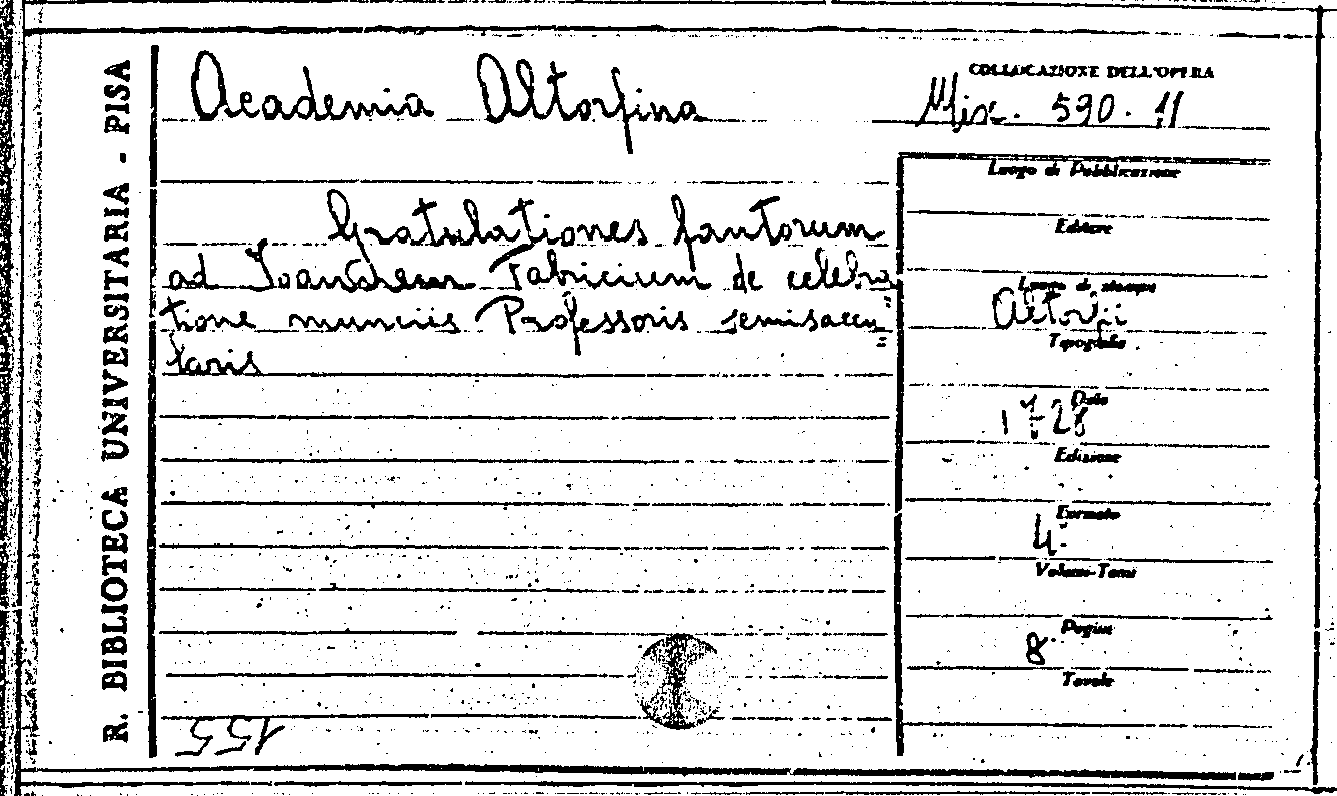 R. BIBLIOTECA UNIVERSITARIA - PISA
Academia Altorfina
COLLOCAZIONE DELL'OPERA
Misc. 590. 11
Gratulationes fautorum
ad Fabricium de celebra
tione muneris Professoris semisaecu=
laris
Luogo di Pubblicazione
Editore
Luogo di stampa
Altorfii
Tipografia
Data
1728
Edizione
Formato
4°
Volumi-Tomi
Pagine
8
Tavole
155